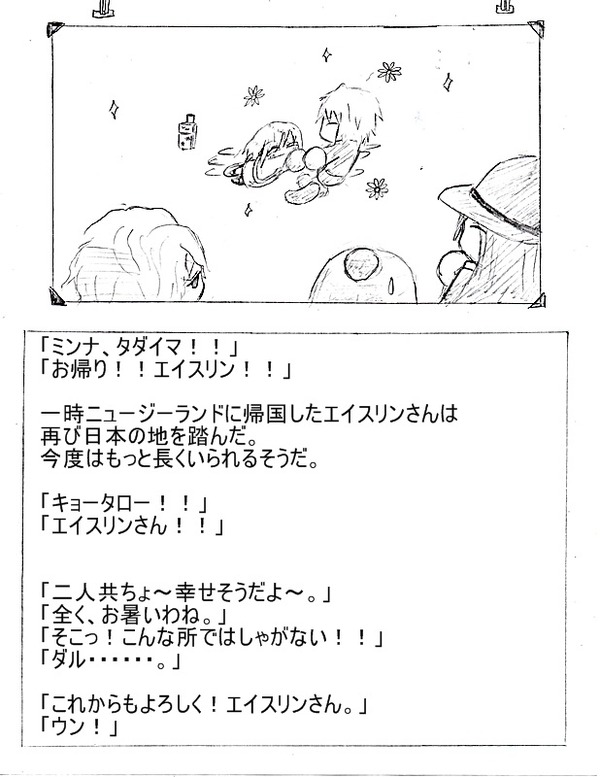 「ミンナ、タダイマ！！」
「お帰り！！エイスリン！！」
一時ニュージーランドに帰国したエイスリンさんは
再び日本の地を踏んだ。
今度はもっと長くいられるそうだ。
「キョータロー！！」
「エイスリンさん！！」
「二人共ちょ～幸せそうだよ～。」
「全く、お暑いわね。」
「そこっ！こんな所ではしゃがない！！」
「ダル・・・・・・。」
「これからもよろしく！エイスリンさん。」
「ウン！」